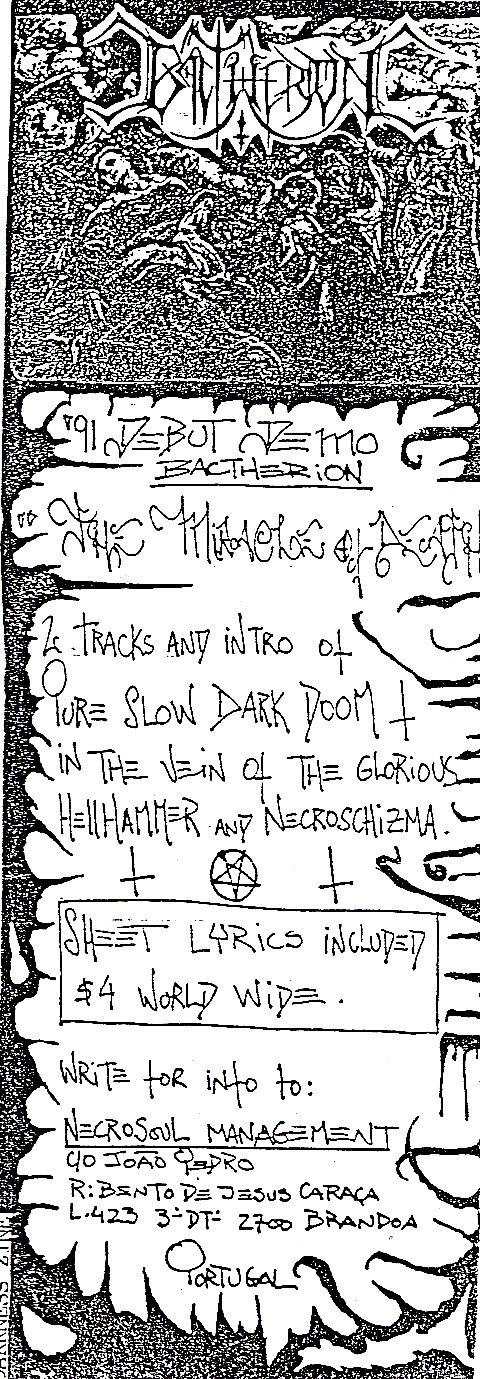 BACTHERION
'91 DEBUT DEMO
BACTHERION
"THE MIRACLE of DEATH
2 TRACKS AND INTRO of
PURE SLOW DARK DOOM
IN THE VEIN OF THE GLORIOUS
HELLHAMMER AND NECROSCHIZMA.
SHEET LYRICS INCLUDED
$4 WORLD WIDE.
WRITE for info to:
NECROSOUL MANAGEMENT
C/O JOÃO PEDRO
R: BENTO DE JESUS CARAÇA
L.423 3º DTº 2700 BRANDOA
PORTUGAL
DARKNESS ZINE